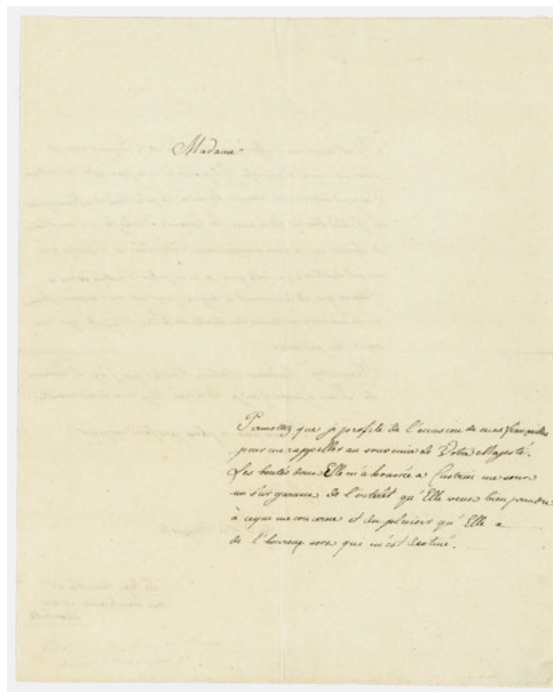 Madame
Permettez que je profite de l'occasion de mes fiançailles
pour me rappeller au souvenir de Votre Majesté.
Les bontés dont Elle m'a honorée a Custrin me sont
un sur garant de l'interêt qu'Elle veut bien prendre
à ce qui me concerne et du plaisir qu'Elle a
de l'heureux sort qui m'est destiné.